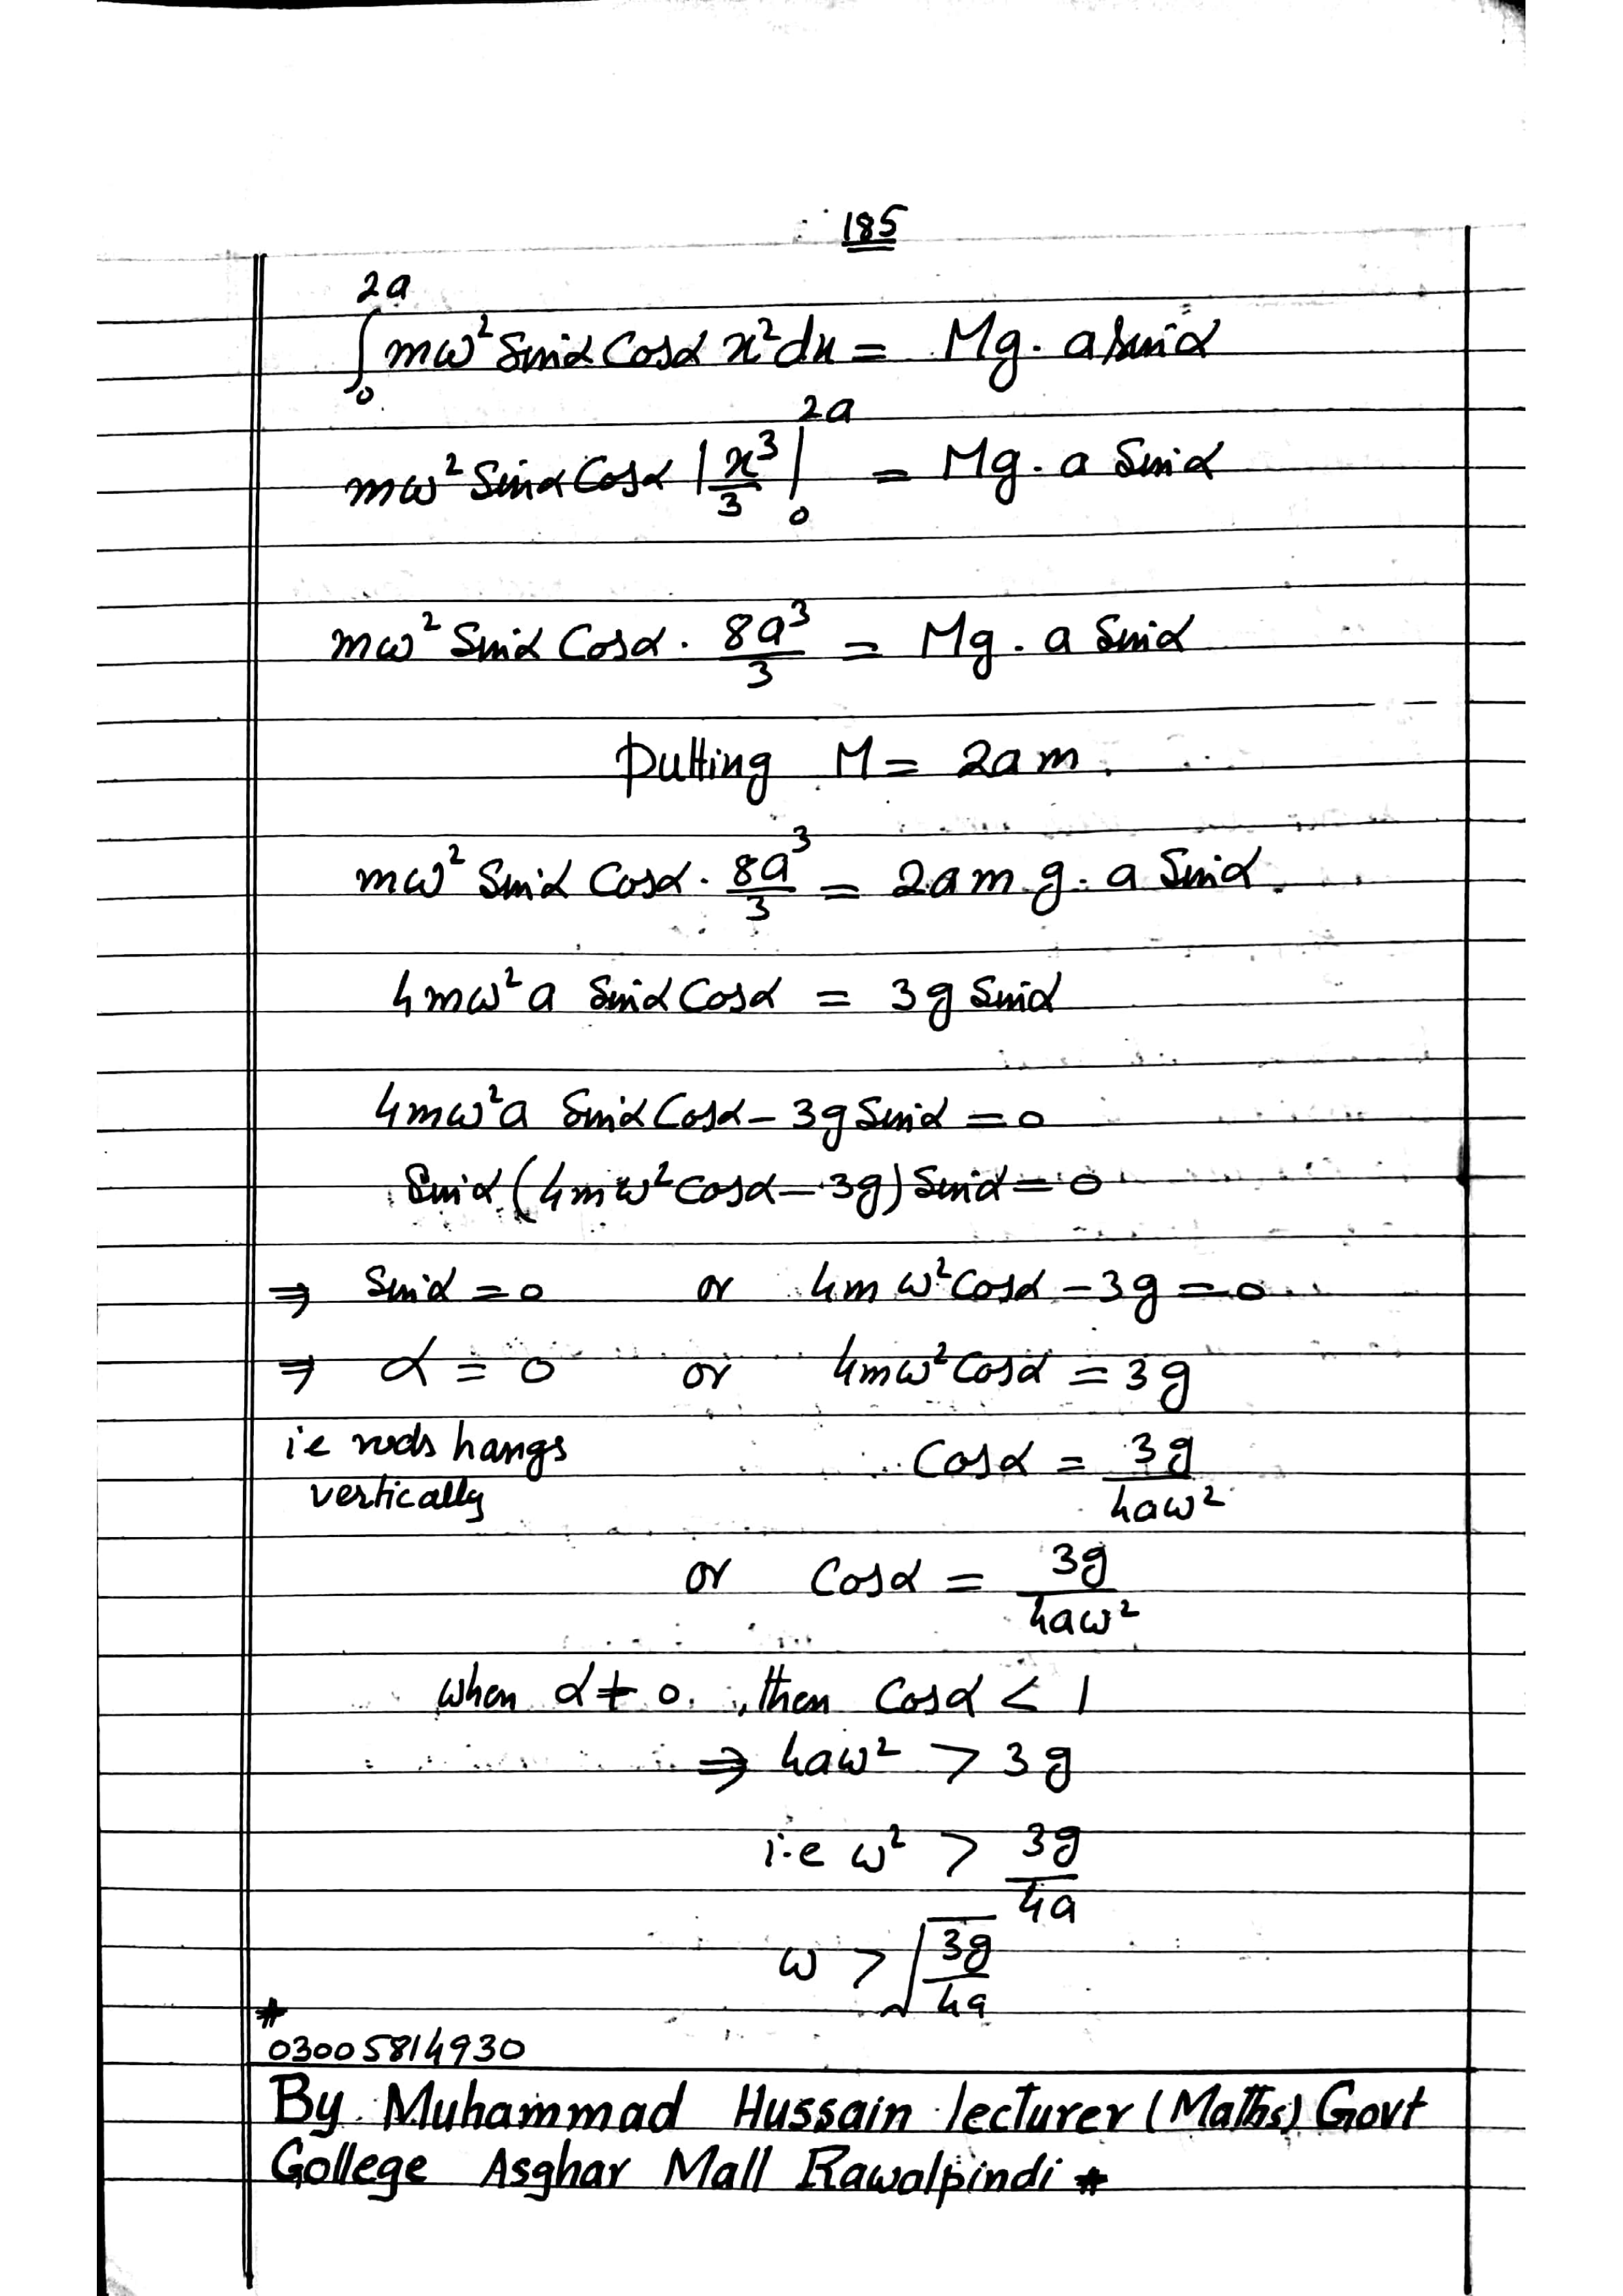 185
∫₀²ᵃ mω² Sinα Cosα x² dx = Mg. a Sinα
mω² Sinα Cosα |x³/3|₀²ᵃ = Mg. a Sinα
mω² Sinα Cosα . 8a³/3 = Mg. a Sinα
Putting M = 2am.
mω² Sinα Cosα . 8a³/3 = 2am g. a Sinα.
4mω²a Sinα Cosα = 3g Sinα
4mω²a Sinα Cosα – 3g Sinα = 0
Sinα (4mω² Cosα – 3g) Sinα = 0
⇒ Sinα = 0 or 4mω² Cosα – 3g = 0
⇒ α = 0 or 4mω² Cosα = 3g
i.e rods hangs
vertically
Cosα = 3g/4aω²
or Cosα = 3g/4aω²
when α ≠ 0, then Cosα < 1
⇒ 4aω² > 3g
i.e ω² > 3g/4a
ω > √(3g/4a)
*
03005814930
By Muhammad Hussain lecturer (Maths) Govt
College Asghar Mall Rawalpindi *